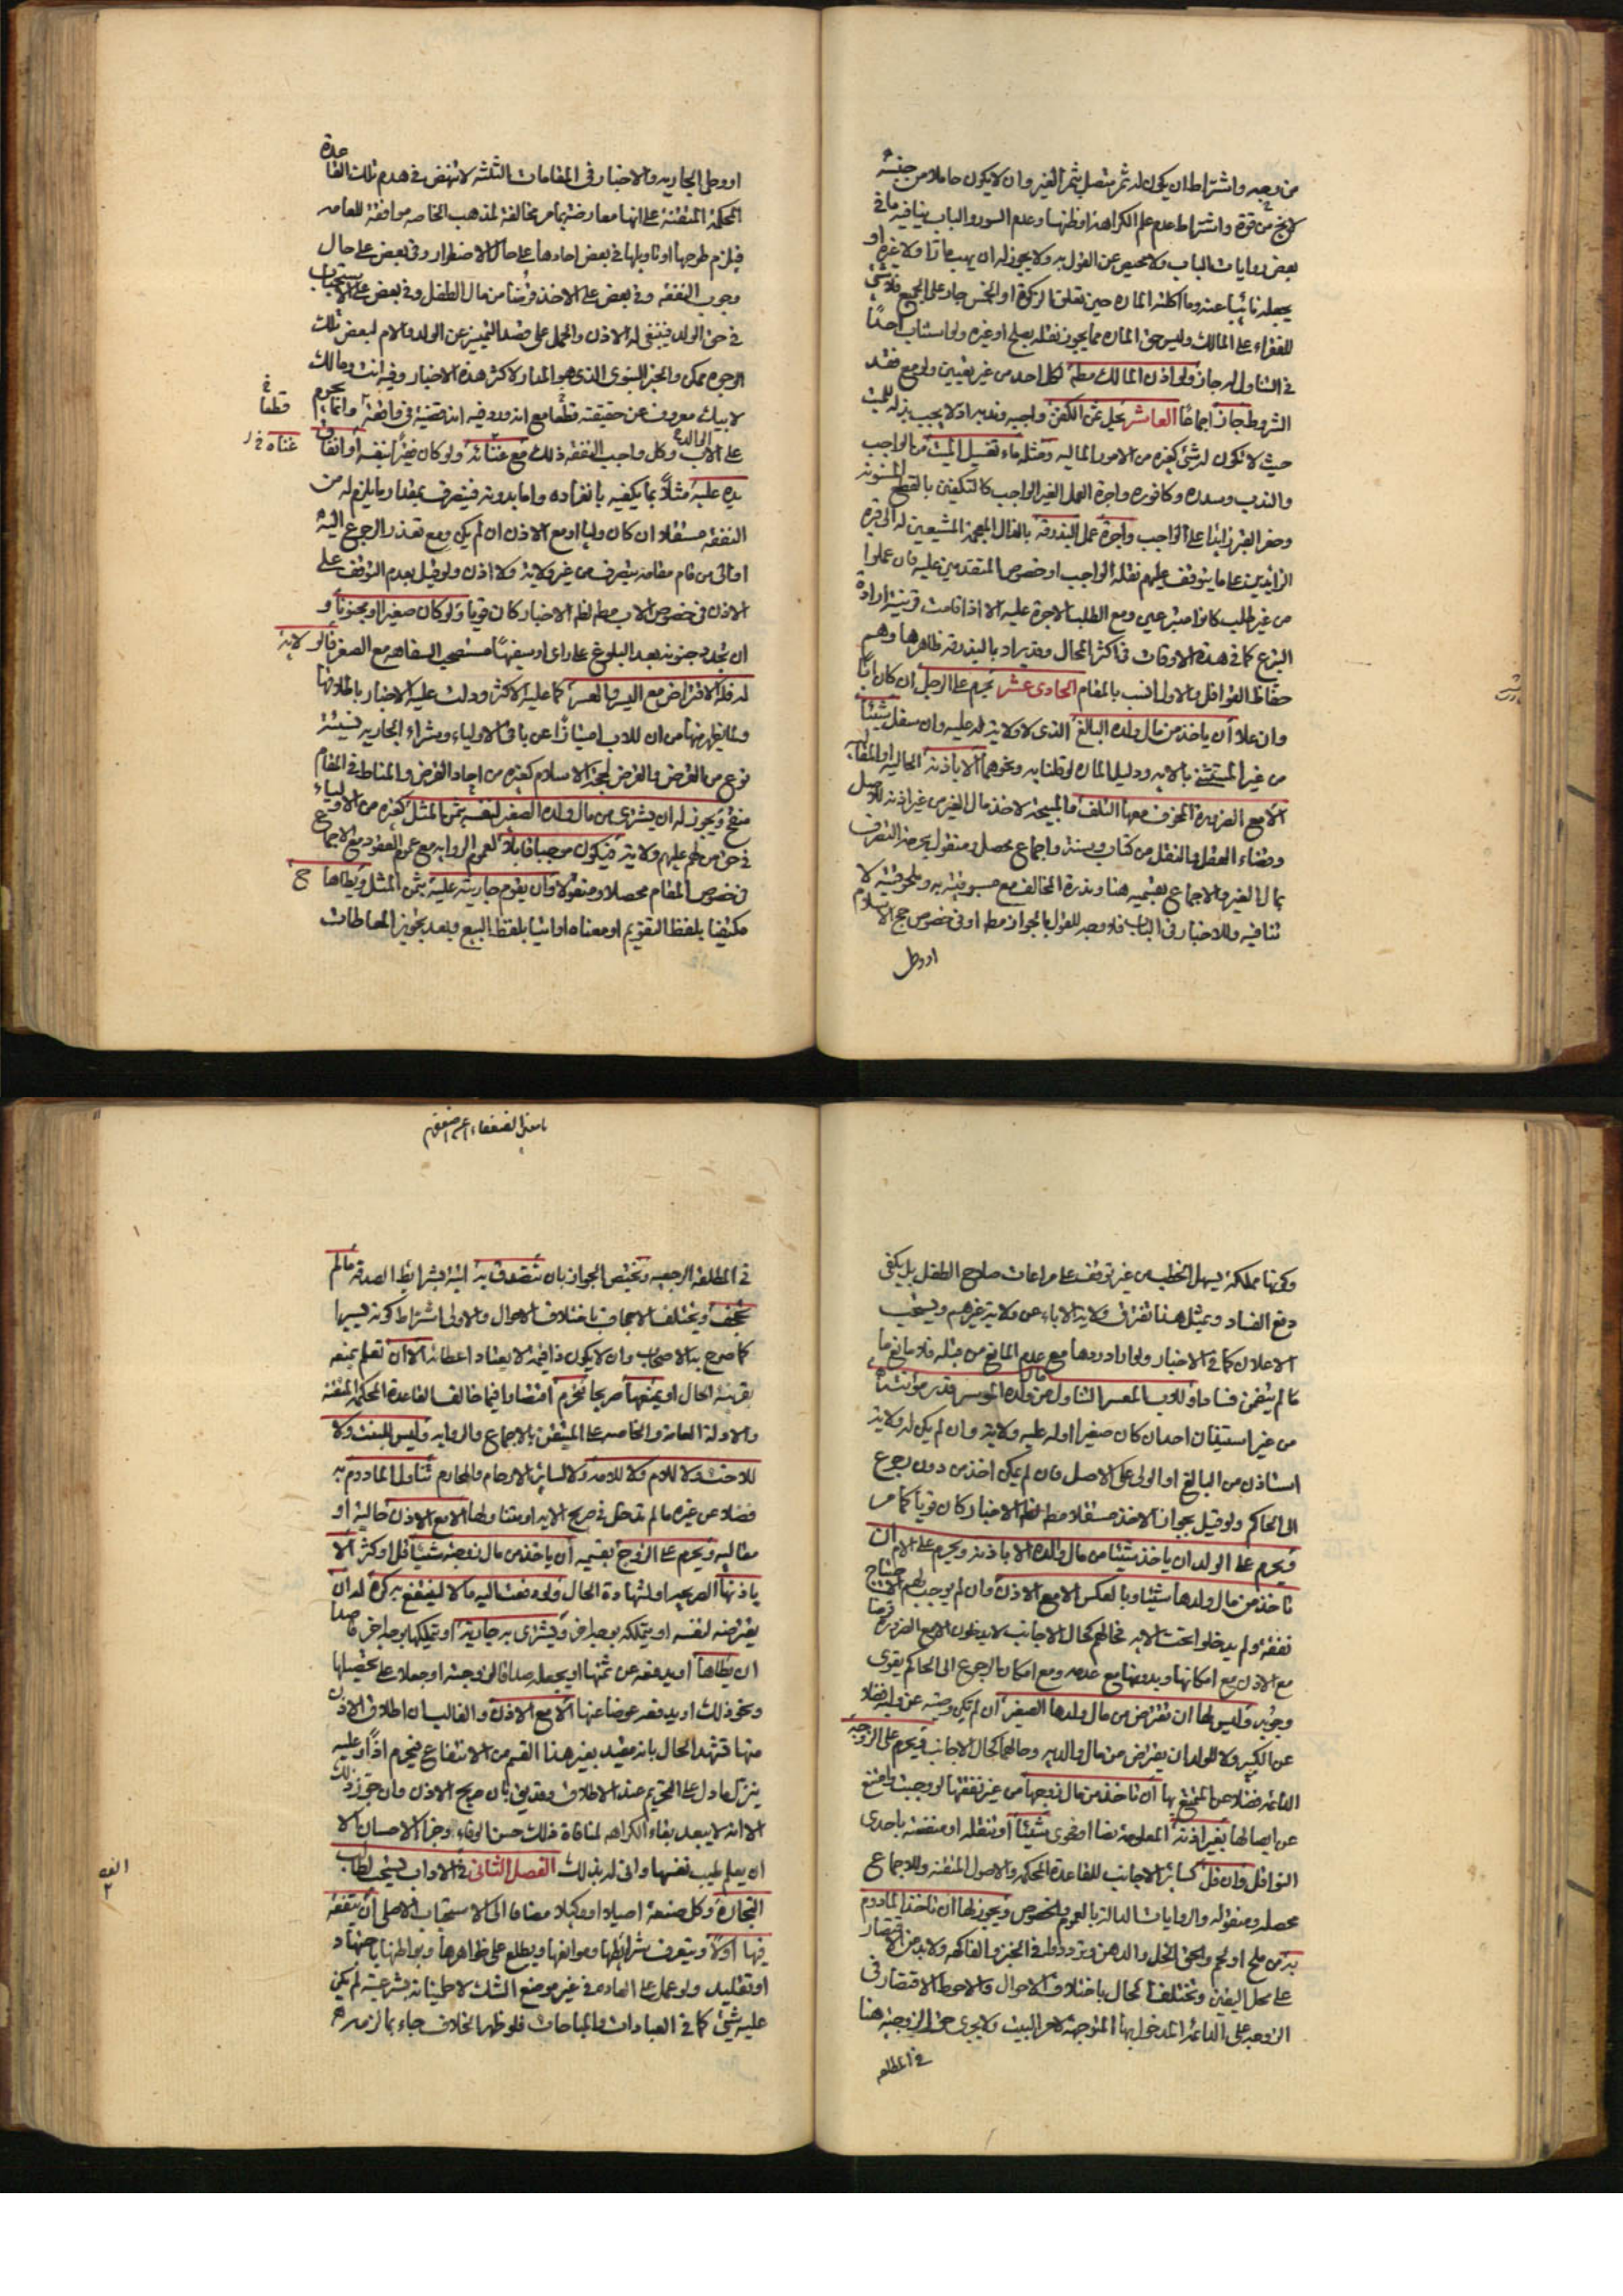 من وجه واشتراط ان يكون له ثمر متصل بثمر الغير وان لا يكون حاملا من جنسه
لا يخ من قوة واشتراط عدم علم الكراهة او ظنها وعدم السور والباب ينافيه ما في
بعض روايات الباب ولا محيص عن القول به ولا يجوز له ان يهب مارّا ولا غيره او
يجعله نائبا عنه وما اكلته المارة حين تعلق الزكوة او الخمس جار على الجميع فلا شئ
للفقراء على المالك وليس حق المارة مما يجوز نقله بصلح او غيره ولو استناب احدًا
في التناول له جاز ولو اذن المالك مطه لكل احد من غير تعيين ولو مع فقد
الشروط جاز اجماعًا العاشر يحل ثمن الكفن واجبه وندبه اذ لا يجب بذله للميت
حيث لا تكون له شئ كغيره من الامور المالية ومثله ماء تغسيل الميت من الواجب
والندب وسدره وكافوره واجرة العمل الغير الواجب كالتكفين بالقطع المسنونه
وحفر القبر زايدا على الواجب واجرة عمل البذرقه
الزايدين على ما يتوقف عليهم نقله الواجب او خصوص المتقدمين عليه فان عملوا
من غير طلب كانوا متبرعين ومع الطلب الاجرة عليه الا اذا قامت قرينة ارادة
التبرع كما في هذه الاوقات في اكثر المحال وقد يراد بالبذرقه ظاهرها وهم
حفاظ القوافل والاول انسب بالمقام الحادى عشر يحرم على الرجل ان كان ابًا
وان علا ان ياخذ من مال ولده البالغ الذى لا ولاية له عليه وان سفل شيئًا
من غير المستثنى بالايه ودليل المارة لو قلنا به ونحوهما الا باذنه الحاليه او المقاليه
الا مع الضرورة المخوف معها التلف والمبيحة لاخذ مال الغير من غير اذنه للاصل
وقضاء العقل والنقل من كتاب وسنة واجماع محصل ومنقول بحرمة التصرف
بمال الغير والاجماع بقسميه هنا وندرة المخالف مع مسبوقيته به وملحوقيته لا
تنافيه وللاخبار في الباب فلا وجه للقول بالجواز مطه او في خصوص حج الاسلام
او وطى
او وطى الجاريه والاخبار في المقامات الثلثه لا تنهض في هدم تلك القاعدة
المحكمة المتقنة على انها معارضة بما مر مخالفة لمذهب الخاصه موافقة للعامه
فيلزم طرحها او تاويلها في بعض احادها على حال الاضطرار وفى بعض على حال
وجوب النفقه وفي بعض على الاخذ قرضًا من مال الطفل وفي بعض على الاستحباب
في حق الولد فينبغى له الاذن والحمل على قصد التمييز عن الولد والام لبعض تلك
الوجوه ممكن والخبر النبوى الذى هو المدار لاكثر هذه الاخبار وفيه انت ومالك
لابيك معروف عن حقيقته قطعا مع انه ورد فيه انه قضية في واقعة وانما يحرم
في
قطعا
على الاب وكل واجب النفقه ذلك مع غنائه ولو كان فقيرا نفقه او انفاق
غناه
يده عليه مثلاً بما يكفيه بانفراده واما بدونه فيتصرف بمقدار ما يلزم له من
النفقه مستقلا ان كان وليا او مع الاذن ان لم يكن ومع تعذر الرجوع اليه
او الى من قام مقامه يتصرف من غير ولاية ولا اذن ولو قيل بعدم التوقف على
الاذن في خصوص الاب مطه لظه الاخبار كان قويا ولو كان صغيرا او مجنونا و
ان تجدد جنونه بعد البلوغ على راى او سفيهًا مستصحب السفاهه مع الصغر فالولايه
له فله الاقتراض مع اليسر والعسر كما عليه الاكثر ودلت عليه الاخبار باطلاقها
ولما يظهر منها من ان للاب امتيازًا عن باقى الاولياء وشراء الجاريه نسيئة
نوع من القرض والقرض لحجة الاسلام كغيره من احاد القرض والمناط في المقام
منقح ويجوز له ان يشترى من مال ولده الصغير لنفسه بثمن المثل كغيره من الاولياء
في حق من لهم عليهم ولاية فيكون موجبا قابلا لعموم الروايه مع عموم العقود مع الاجماع
في خصوص المقام محصلا ومنقولا وان يقوم جاريته عليه بثمن المثل ويطاها ح
مكتفيا بلفظ التقويم او معناه او اتيا بلفظ البيع وبعد تجويز المعاطات
وكونها مملكة يسهل الخطب من غير توقف على مراعات صلاح الطفل بل يكفى
دفع الفساد وبمثل هذا تفترق ولاية الاباء عن ولاية غيرهم ويستحب
الاعلان كما في الاخبار ولو اراد ردها مع عدم المانع من قبله فلا مانع ما
ما لم يتضمن فسادا وللاب المعسر التناول من ولده الموسر قدر مؤنته
من غير استيذان احد ان كان صغيرا او له عليه ولاية وان لم يكن له ولاية
استاذن من البالغ او الولى على الاصل فان لم يمكن اخذ من دون رجوع
الى الحاكم ولو قيل بجواز الاخذ مستقلا مطه لظه الاخبار كان قويا كما مر
ويحرم على الولد ان ياخذ شيئا من مال والده الا باذنه ويحرم على الام ان
تاخذ من مال ولدها شيئا وبالعكس الا مع الاذن وان لم يوجب لهم الاحتياج
نفقة ولم يدخلوا تحت الايه فحالهم كحال الاجانب لا يدخلون الا مع الضرورة قرضا
مع الاذن مع امكانها وبدونها مع عدمه ومع امكان الرجوع الى الحاكم يقوى
وجوبه وليس لها ان تقترض من مال ولدها الصغير ان لم تكن وصية عن وليه فضلا
عن الكبير ولا للولد ان يقترض من مال والديه وحالهما كحال الاجانب ويحرم على الزوجة
الدائمه فضلا عن المتمتع بها ان تاخذ من مال زوجها من غير نفقتها لو وجبت وامتنع
عن ايصالها بغير اذنه المعلومة نصا او فحوى شيئًا او تنقله او منفعته باحدى
النواقل وان قل كسائر الاجانب للقاعدة المحكمه والاصول المتقنه وللاجماع
محصله ومنقوله والروايات الدالة بالعموم والخصوص ويجوز لها ان تاخذ المادوم
به من ملح او لحم والحق الخل والدهن وتردد في الخبز والفاكهه ولا بد من الاقتصار
على محل اليقين وتختلف الحال باختلاف الاحوال والاحوط الاقتصار في
الزوجه على الدائمة المدخول بها المتوجهة لامر البيت ولا يجرى حق الزوجيه هنا
في المطلقه
في المطلقة الرجعيه وتختص الجواز بان تتصدق به انية بشرائط الصدقه مالم
تجحف ويختلف الاجحاف باختلاف الاحوال والاولى اشتراط كونه يسيرا
كما صرح به الاصحاب وان لا يكون ذا قيمة لا يعتاد اعطائه الا ان تعلم بمنعه
بقرينة الحال او يمنعها صريحا فتحرم اقتصارا فيما خالف القاعدة المحكمة المتقنه
والادلة العامة والخاصه على المتيقن بالاجماع والروايه وليس للبنت ولا
للاخت ولا للام ولا للامه ولا لسائر الارحام والمحارم تناول المادوم به
فضلا عن غيره ما لم تدخل في صريح الايه او يتناولها الا مع الاذن حالية او
مقاليه ويحرم على الزوج بقسميه ان ياخذ من مال زوجته شيئا قل او كثر الا
باذنها الصريحه او لشهادة الحال ولو دفعت اليه مالا لينتفع به كره له ان
يقترضه لنفسه او يتملكه بوجه اخر ويشترى به جارية او يتملكها بوجه اخر قاصدا
ان يطاها او يدفعه عن ثمنها او يجعله صداقا لزوجته او جعلا على تحصيلها
ونحو ذلك او يدفعه عوضا عنها الا مع الاذن والغالب ان اطلاق الاذن
منها تشهد الحال بانه مقيد بغير هذا القسم من الانتفاع فيحرم اذًا وعليه
ينزل ما دل على التحريم عند الاطلاق وقد يق بان صريح الاذن وان جوز ذلك
الا انه لا يبعد بقاء الكراهه لمنافاة ذلك حسن الوفاء وجزاء الاحسان الا
ان يعلم طيب نفسها وانى له بذلك الفصل الثانى في الاداب يستحب لطالب
التجارة وكل صنعة اصيلا او وكيلا مضافا الى الاستحباب الاصلى ان يتفقه
فيها اولاً ويتعرف شرائطها وموانعها ويطلع على ظواهرها وبواطنها باجتهاد
او تقليد ولو عمل على العادى في غير موضع الشك لاطمينانه بشرعيته لم يكن
عليه شئ كما في العبادات والمباحات فلو ظهر الخلاف جاء بما لزمه